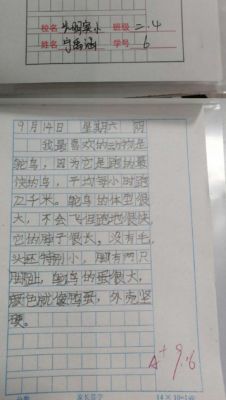 校名 头朋实小 班级 二.4
姓名 学号 6
9月14日 星期六 阴
我最喜欢的动物是
鸵鸟，因为它是跑的最
快的鸟，平均每小时跑
72千米。鸵鸟的体型很
大，不会飞但跑地很快
它的脖子很长。没有毛，
头还特别小，脚有两只
脚趾，鸵鸟的蛋很大，
颜色就像鸭蛋，外壳坚
硬。
A+ 9.16
家长签字 14×10=140